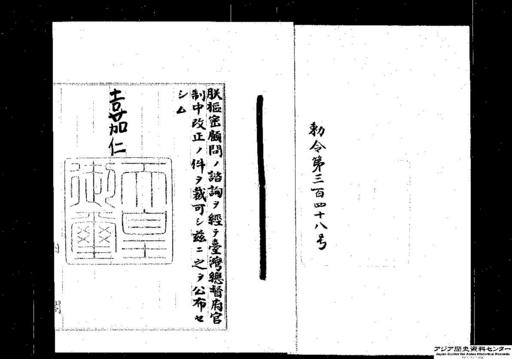 勅令第三百四十八号
朕樞密顧問ノ諮詢ヲ經テ臺灣總督府官
制中改正ノ件ヲ裁可シ茲ニ之ヲ公布セ
シム
嘉仁
天皇
御璽
アジア歴史資料センター
Japan Center for Asian Historical Records